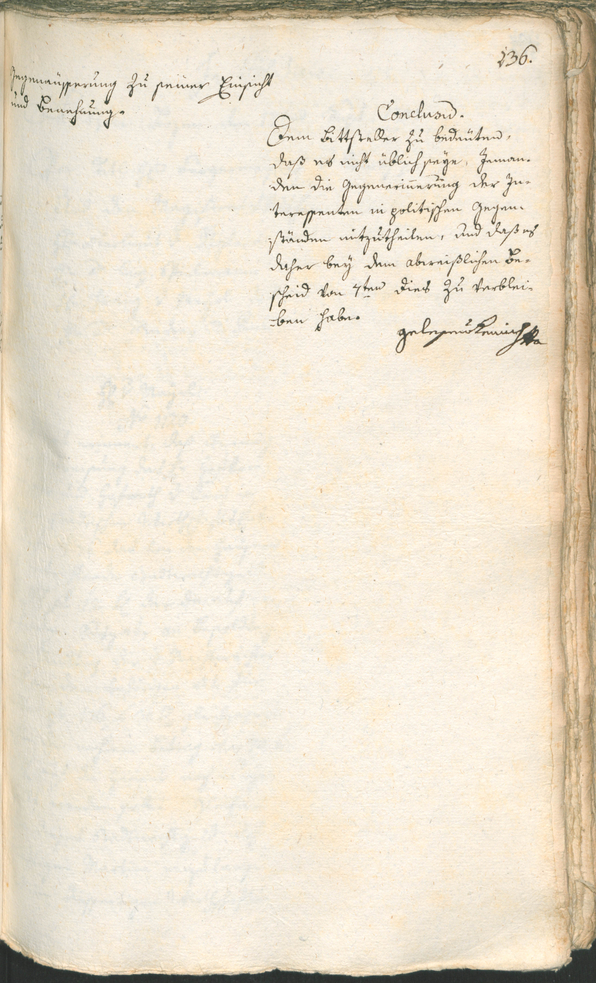 136.
Gegenäusserung zu seiner Einsicht
und Benehmung.
Conclusum.
Dem Bittsteller zu bedeuten,
daß es nicht üblich seye, Jeman-
den die Gegenerinnerung der In-
teressenten in politischen Gegen-
ständen mitzutheilen, und daß es
daher bey dem abweißlichen Be-
scheid von 7ten dies zu verblei-
ben habe.